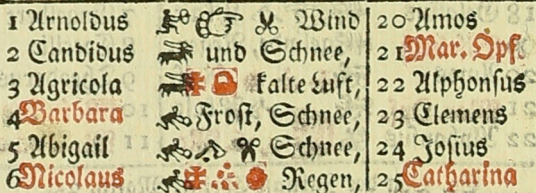 1 Arnoldus Wind 20 Amos
2 Candidus und Schnee, 21 Mar. Opf.
3 Agricola kalte Luft, 22 Alphonsus
4 Barbara Frost, Schnee, 23 Clemens
5 Abigail Schnee, 24 Josius
6 Nicolaus Regen, 25 Catharina